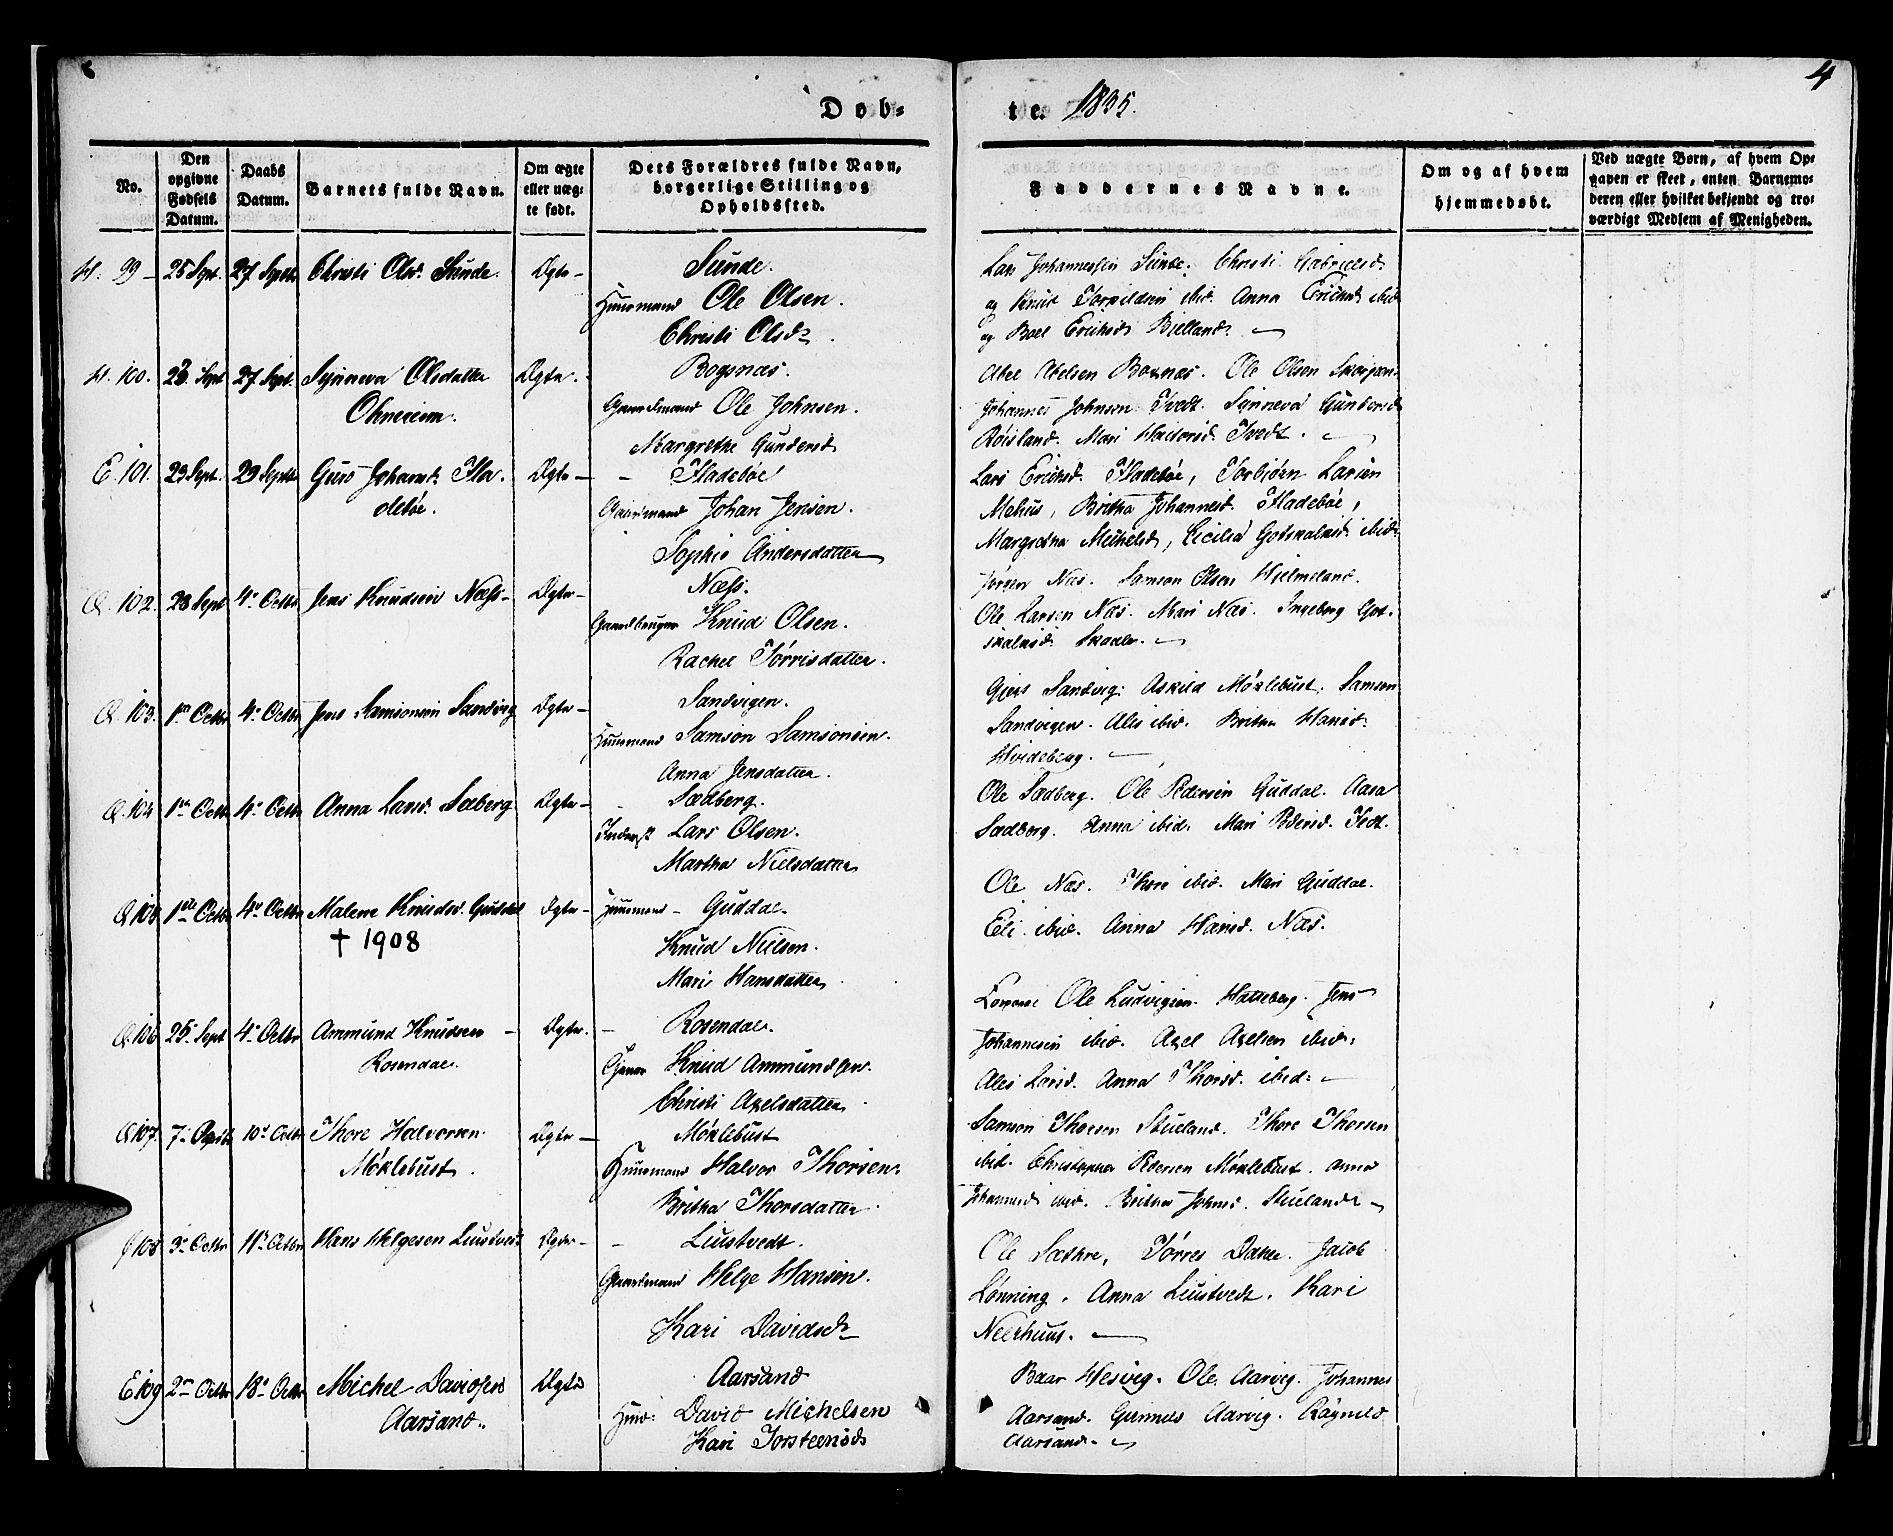 4
Døb=
te. 1835.
No.
Den opgivne Fødsels Datum.
Daabs Datum.
Barnets fulde Navn.
Om ægte eller uæg= te født.
Dets Forældres fulde Navn, borgerlige Stilling og Opholdssted.
Faddernes Navne.
Om og af hvem hjemmedøbt.
Ved uægte Børn, af hvem Op= gaven er skeet, enten Barnemo= deren eller hvilket bekjendt og tro= værdigt Medlem af Menigheden.
99 – 25 Sept. 27 Sept. Christi Olsd. Sunde. Ægte – Sunde.
Huusmand Ole Olsen.
Christi Olsd.
Lars Johannessen Sunde. Christi Gabrielsd.
og Knud Torkildsen ibid. Anna Ericksd ibid
og Boel Ericksd Bielland. –
100. 23 Sept 27 Sept. Synneva Olsdatter Ægte. Bogsnæs.
Omvikim.
Gaardmand Ole Johnsen.
Margrethe Gundersd
Abel Abelsen Bognæs. Ole Olsen
Johannes Johnsen Tvedt. Synneva Gundersd
Røisland. Mari Haldorsd. Tvedt.
E. 101. 23 Sept. 29 Sept. Guro Johansd. Fla= Ægte – Fladebøe
debøe.
Gaardmand Johan Jensen.
Sophie Andersdatter
Lars Ericksd. Fladebøe, Torbjørn Larsen
Mehus, Britha Johannesd. Fladebøe,
Margretha Michelsd, Cicilia Gotskalksd. ibid.
Q. 102. 28 Sept 4. Octbr Jens Knudsen Næss – Ægte – Næss.
Gaardbruger Knud Olsen.
Rachel Tørrisdatter.
Jørgen Næs. Samson Olsen Hielmeland.
Ole Larsen Næs. Mari Næs. Ingeborg Got=
skalksd. Skaale. –
Q. 103. 1ste Octbr 4. Octbr Jens Samsonsen Sandvig Ægte – Sandvigen.
Huusmand Samson Samsonsen.
Anna Jensdatter.
Gjers Sandvig. Askild Møklebust. Samson
Sandvigen. Ales ibid. Britha Hansd.
Hvideberg. –
Q. 104 1ste Octbr 4. Octbr Anna Larsd. Sæberg Ægte – Sædberg.
Inderst Lars Olsen.
Martha Nielsdatter
Ole Sædberg. Ole Pedersen Guddal. Aasa
Sædberg. Anna ibid. Mari Pedersd. Tvedt.
Q. 105 1ste Octbr 4. Octbr Malene Knudsd. Guddal Ægte – Huusmand – Guddal.
† 1908
Knud Nielsen.
Mari Hansdatter
Ole Næs. Thore ibid. Mari Guddal.
Eli ibid. Anna Hansd. Næs.
Q. 106 25. Sept 4. Octbr Ammund Knudsen – Ægte. – Rosendal.
Rosendal.
Tjener Knud Ammundsen.
Christi Axelsdatter
Ole Ludvigsen Hatteberg. Jens
Johannesen ibid. Axel Axelsen ibid.
Ales Larsd. Anna Thorsd. ibid. –
Q. 107. 7. 10. Octbr Thore Halvorsen Ægte – Møklebust
Møklebust.
Huusmand Halvor Thorsen.
Britha Thorsdatter.
Samson Thorsen Skueland. Thore Thorsen
ibid. Christopher Pedersen Møklebust. Anna
Johannesd ibid. Britha Johnsd. Skueland. –
108 3. Octbr 11. Octbr Hans Helgesen Liustvedt Ægte – Liustvedt.
Gaardmand Helge Hansen.
Kari Davidsd.
Ole Sæthre, Tørres Dahle. Jacob
Lønning. Anna Liustvedt. Kari
Neerhuus. –
E 109 2den Octbr 18. Octbr Michel Davidsen Ægte Aarsand
Aarsand.
Huus: David Michelsen
Kari Torsteensd.
Baar Hesvig. Ole Aarvig. Johannes
Aarsand. Gunnild Aarvig. Ragnild
Aarsand. –